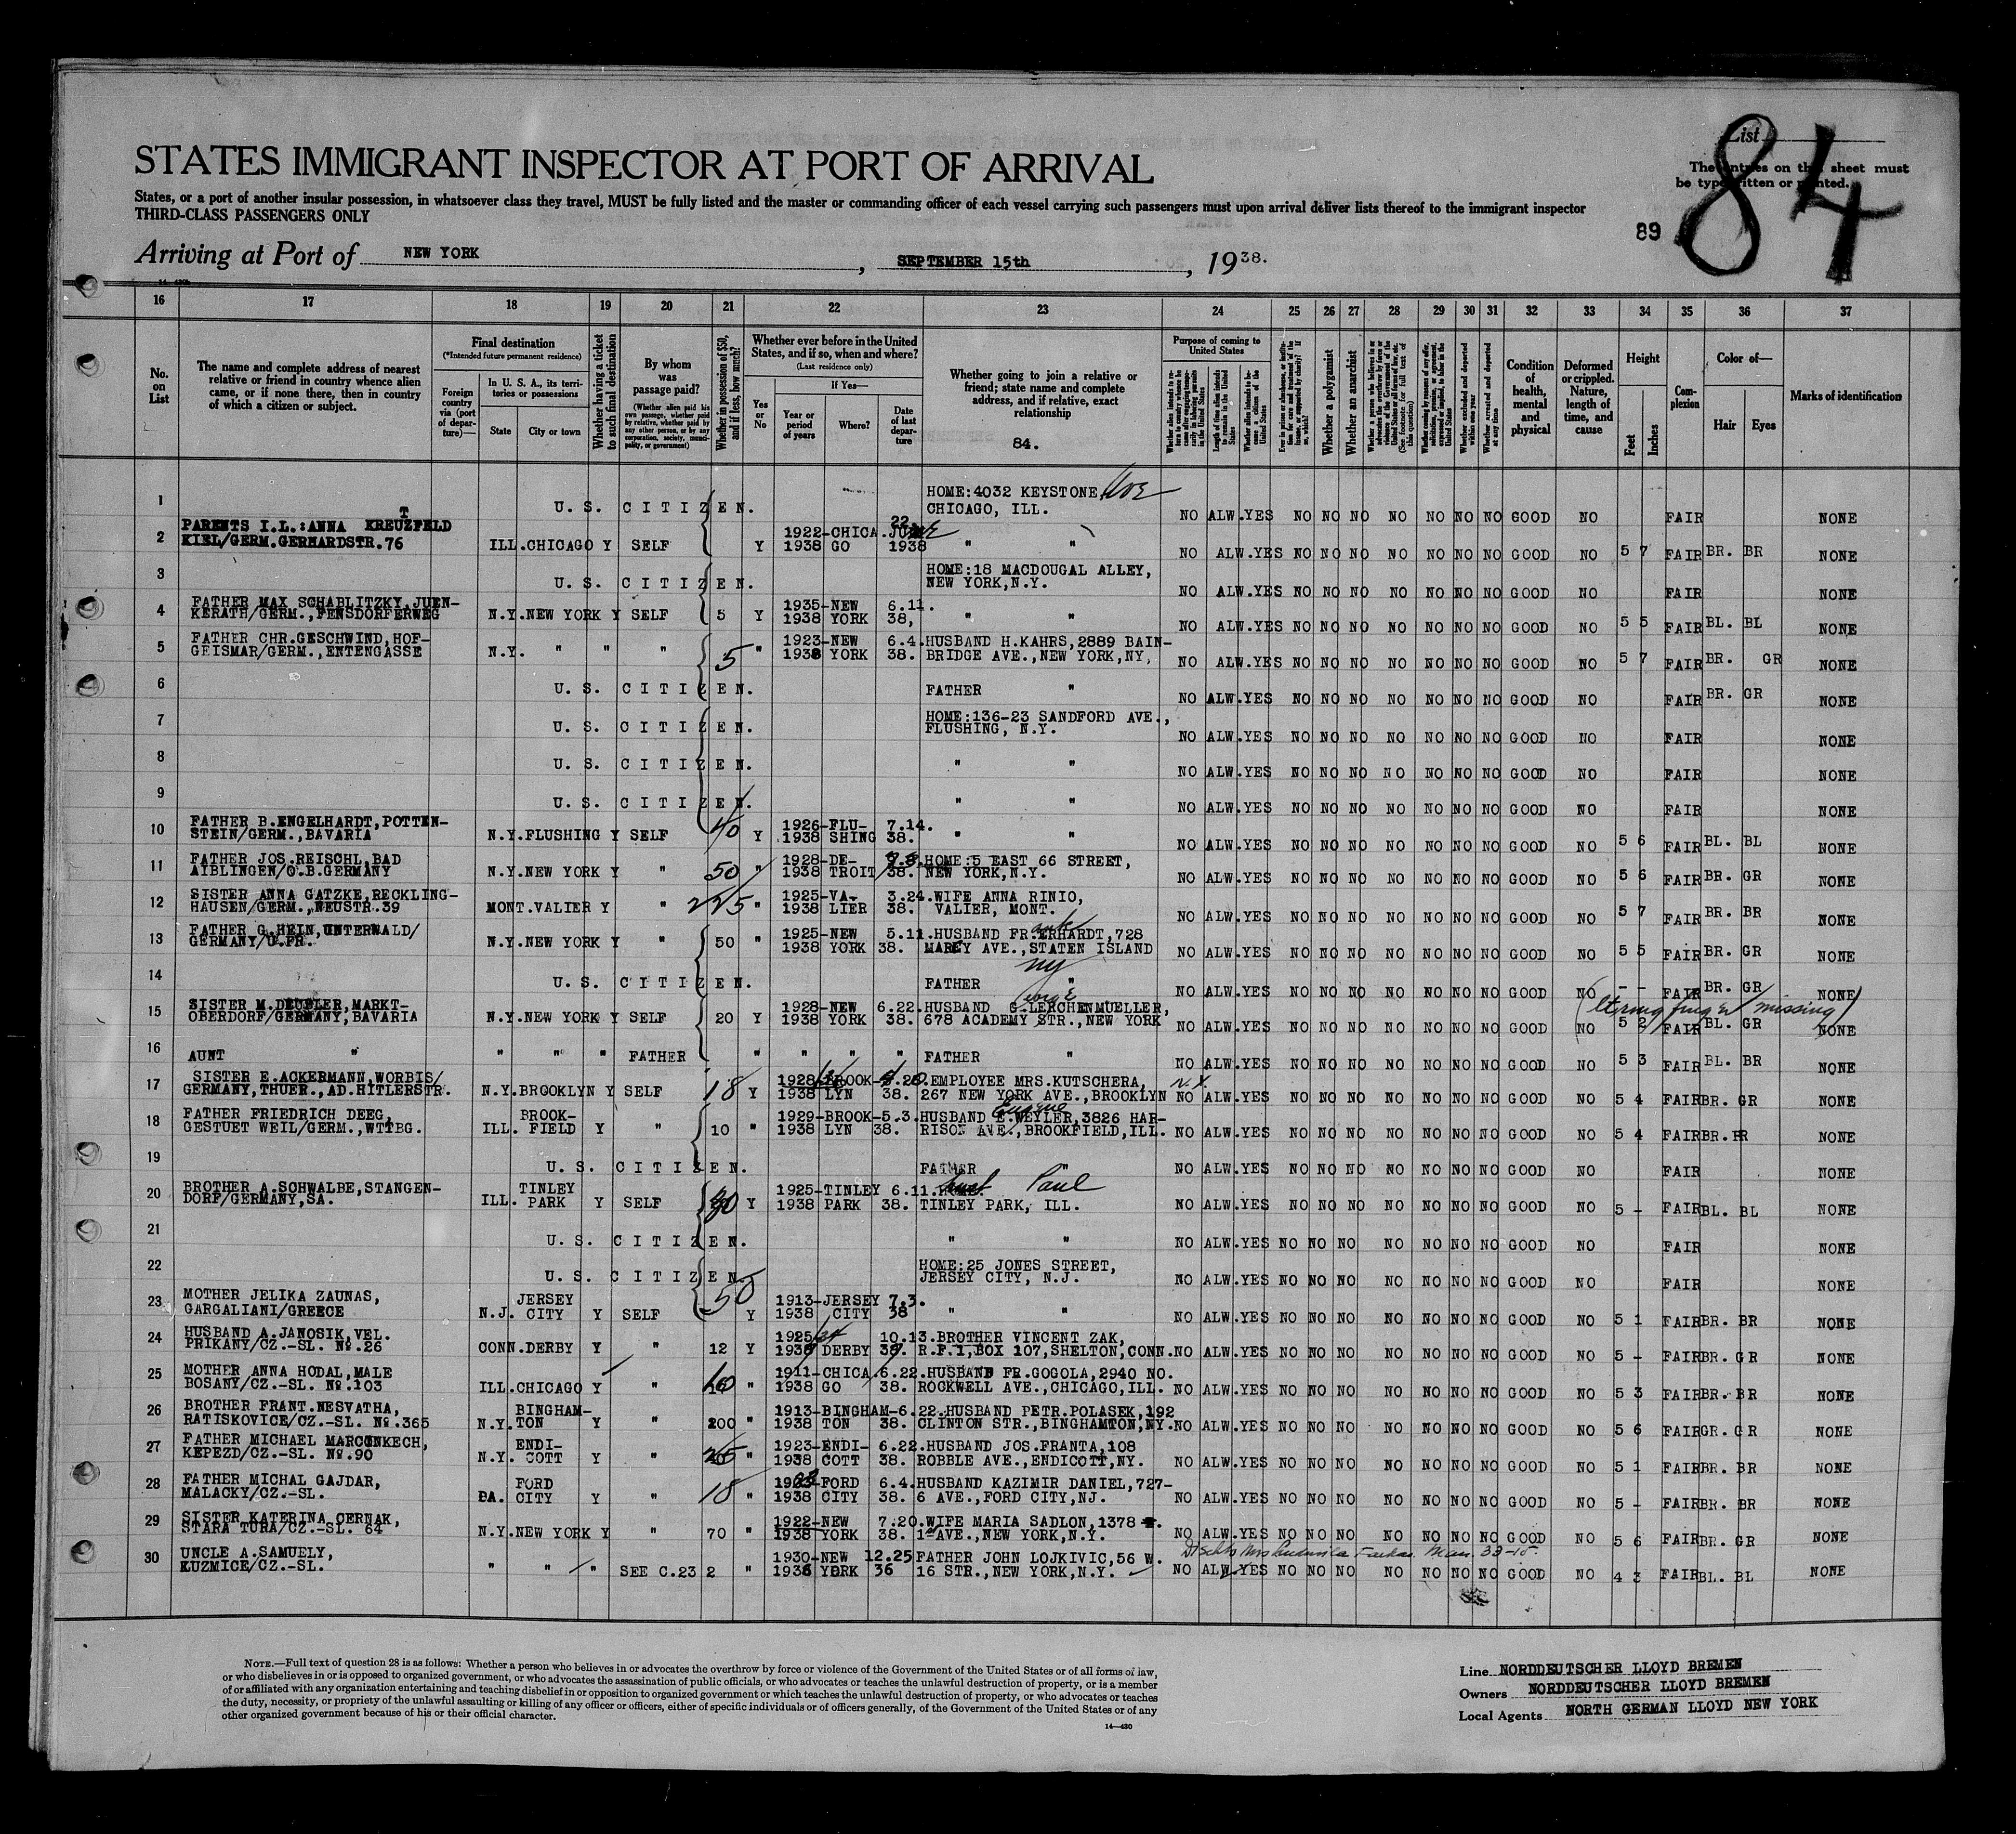 List
84
The entries on this sheet must
be typewritten or printed.
STATES IMMIGRANT INSPECTOR AT PORT OF ARRIVAL
States, or a port of another insular possession, in whatsoever class they travel, MUST be fully listed and the master or commanding officer of each vessel carrying such passengers must upon arrival deliver lists thereof to the immigrant inspector
THIRD-CLASS PASSENGERS ONLY
89
Arriving at Port of NEW YORK, SEPTEMBER 15th, 1938.
16 17 18 19 20 21 22 23 24 25 26 27 28 29 30 31 32 33 34 35 36 37
No. on List
The name and complete address of nearest relative or friend in country whence alien came, or if none there, then in country of which a citizen or subject.
Final destination
(*Intended future permanent residence)
Foreign country via (port of departure)—
In U. S. A., its territories or possessions
State City or town
Whether having a ticket to such final destination
By whom was passage paid?
(Whether alien paid his own passage, whether paid by relative, whether paid by any other person, or by any corporation, society, municipality, or government)
Whether in possession of $50, and if less, how much?
Whether ever before in the United States, and if so, when and where?
(Last residence only)
Yes or No
If Yes—
Year or period of years Where? Date of last departure
Whether going to join a relative or friend; state name and complete address, and if relative, exact relationship
84.
Purpose of coming to United States
Whether a polygamist
Whether an anarchist
Condition of health, mental and physical
Deformed or crippled. Nature, length of time, and cause
Height
Feet Inches
Complexion
Color of—
Hair Eyes
Marks of identification
1 U. S. CITIZEN. HOME:4032 KEYSTONE Ave
CHICAGO, ILL. NO ALW.YES NO NO NO NO NO NO NO GOOD NO FAIR NONE
PARENTS I.L.:ANNA KREUTZFELD 1922-CHICA. 22
2 KIEL/GERM.GERHARDSTR.76 ILL.CHICAGO Y SELF Y 1938 GO 1938 " " NO ALW.YES NO NO NO NO NO NO NO GOOD NO 5 7 FAIR BR. BR NONE
3 U. S. CITIZEN. HOME:18 MACDOUGAL ALLEY,
NEW YORK,N.Y. NO ALW.YES NO NO NO NO NO NO NO GOOD NO FAIR NONE
4 FATHER MAX SCHABLITZKY,JUEN- 1935-NEW 6.11.
KERATH/GERM.,FENSDORFERWEG N.Y.NEW YORK Y SELF 5 Y 1938 YORK 38, " " NO ALW.YES NO NO NO NO NO NO NO GOOD NO 5 5 FAIR BL. BL NONE
5 FATHER CHR.GESCHWIND,HOF- 1923-NEW 6.4.HUSBAND H.KAHRS,2889 BAIN-
GEISMAR/GERM.,ENTENGASSE N.Y. " " " 5 " 1938 YORK 38. BRIDGE AVE.,NEW YORK,NY, NO ALW.YES NO NO NO NO NO NO NO GOOD NO 5 7 FAIR BR. GR NONE
6 U. S. CITIZEN. FATHER " NO ALW.YES NO NO NO NO NO NO NO GOOD NO FAIR BR. GR NONE
7 U. S. CITIZEN. HOME:136-23 SANDFORD AVE.,
FLUSHING, N.Y. NO ALW.YES NO NO NO NO NO NO NO GOOD NO FAIR NONE
8 U. S. CITIZEN. " " NO ALW.YES NO NO NO NO NO NO NO GOOD NO FAIR NONE
9 U. S. CITIZEN. " " NO ALW.YES NO NO NO NO NO NO NO GOOD NO FAIR NONE
10 FATHER B.ENGELHARDT,POTTEN- 1926-FLU- 7.14.
STEIN/GERM.,BAVARIA N.Y.FLUSHING Y SELF 40 Y 1938 SHING 38. " " NO ALW.YES NO NO NO NO NO NO NO GOOD NO 5 6 FAIR BL. BL NONE
11 FATHER JOS.REISCHL,BAD 1928-DE- HOME:5 EAST 66 STREET,
AIBLINGEN/O.B.GERMANY N.Y.NEW YORK Y " 50 " 1938 TROIT 38. NEW YORK,N.Y. NO ALW.YES NO NO NO NO NO NO NO GOOD NO 5 6 FAIR BR. GR NONE
12 SISTER ANNA GATZKE,RECKLING- 1925-VA- 3.24.WIFE ANNA RINIO,
HAUSEN/GERM.,NEUSTR.39 MONT.VALIER Y " 225 " 1938 LIER 38. VALIER, MONT. NO ALW.YES NO NO NO NO NO NO NO GOOD NO 5 7 FAIR BR. BR NONE
13 FATHER G.HEIN,UNTERWALD/ 1925-NEW 5.11.HUSBAND FR.ERHARDT,728
GERMANY/U.FR. N.Y.NEW YORK Y " 50 " 1938 YORK 38. AVE.,STATEN ISLAND NO ALW.YES NO NO NO NO NO NO NO GOOD NO 5 5 FAIR BR. GR NONE
ny
14 U. S. CITIZEN. FATHER " NO ALW.YES NO NO NO NO NO NO NO GOOD NO - - FAIR BR. GR NONE
finger missing
15 SISTER M.DEUBLER,MARKT- 1928-NEW 6.22.HUSBAND G.LERCHENMUELLER,
OBERDORF/GERMANY,BAVARIA N.Y.NEW YORK Y SELF 20 Y 1938 YORK 38. 678 ACADEMY STR.,NEW YORK NO ALW.YES NO NO NO NO NO NO NO GOOD NO 5 2 FAIR BL. GR NONE
16 AUNT " " " " FATHER " " " " FATHER " NO ALW.YES NO NO NO NO NO NO NO GOOD NO 5 3 FAIR BL. BR NONE
17 SISTER E.ACKERMANN,WORBIS/ 1928-BROOK- EMPLOYEE MRS.KUTSCHERA, N.Y.
GERMANY,THUER.,AD.HITLERSTR. N.Y.BROOKLYN Y SELF 18 Y 1938 LYN 38. 267 NEW YORK AVE.,BROOKLYN NO ALW.YES NO NO NO NO NO NO NO GOOD NO 5 4 FAIR BR. GR NONE
Eugene
18 FATHER FRIEDRICH DEEG, BROOK- 1929-BROOK-5.3.HUSBAND E.WEYLER,3826 HAR-
GESTUET WEIL/GERM.,WTTBG. ILL. FIELD Y " 10 " 1938 LYN 38. RISON AVE.,BROOKFIELD,ILL. NO ALW.YES NO NO NO NO NO NO NO GOOD NO 5 4 FAIR BR. NONE
19 U. S. CITIZEN. FATHER " NO ALW.YES NO NO NO NO NO NO NO GOOD NO FAIR NONE
20 BROTHER A.SCHWALBE,STANGEN- TINLEY 1925-TINLEY 6.11. Paul
DORF/GERMANY,SA. ILL. PARK Y SELF 30 Y 1938 PARK 38. TINLEY PARK, ILL. NO ALW.YES NO NO NO NO NO NO NO GOOD NO 5 - FAIR BL. BL NONE
21 U. S. CITIZEN. " " NO ALW.YES NO NO NO NO NO NO NO GOOD NO FAIR NONE
22 U. S. CITIZEN. HOME:25 JONES STREET,
JERSEY CITY, N.J. NO ALW.YES NO NO NO NO NO NO NO GOOD NO FAIR NONE
23 MOTHER JELIKA ZAUNAS, JERSEY 1913-JERSEY 7.3.
GARGALIANI/GREECE N.J. CITY Y SELF 50 Y 1938 CITY 38 " " NO ALW.YES NO NO NO NO NO NO NO GOOD NO 5 1 FAIR BR. BR NONE
24 HUSBAND A.JANOSIK,VEL. 1925 10.13.BROTHER VINCENT ZAK,
PRIKANY/CZ.-SL. No.26 CONN.DERBY Y " 12 Y DERBY R.F.1,BOX 107,SHELTON,CONN. NO ALW.YES NO NO NO NO NO NO NO GOOD NO 5 - FAIR BR. GR NONE
25 MOTHER ANNA HODAL,MALE 1911-CHICA 6.22.HUSBAND FR.GOGOLA,2940 NO.
BOSANY/CZ.-SL. No.103 ILL.CHICAGO Y " " 1938 GO 38. ROCKWELL AVE.,CHICAGO,ILL. NO ALW.YES NO NO NO NO NO NO NO GOOD NO 5 3 FAIR BR. BR NONE
26 BROTHER FRANT.NESVATHA, BINGHAM- 1913-BINGHAM-6.22.HUSBAND PETR.POLASEK,192
RATISKOVICE/CZ.-SL. No.365 N.Y.TON Y " 200 " 1938 TON 38. CLINTON STR.,BINGHAMTON,NY. NO ALW.YES NO NO NO NO NO NO NO GOOD NO 5 6 FAIR GR. GR NONE
27 FATHER MICHAEL MARCONKECH, ENDI- 1923-ENDI- 6.22.HUSBAND JOS.FRANTA,108
KEPEZD/CZ.-SL. No.90 N.Y. COTT Y " 25 " 1938 COTT 38. ROBBLE AVE.,ENDICOTT,NY. NO ALW.YES NO NO NO NO NO NO NO GOOD NO 5 1 FAIR BR. BR NONE
28 FATHER MICHAL GAJDAR, FORD 1923-FORD 6.4.HUSBAND KAZIMIR DANIEL,727-
MALACKY/CZ.-SL. PA. CITY Y " 18 " 1938 CITY 38. 6 AVE.,FORD CITY,NJ. NO ALW.YES NO NO NO NO NO NO NO GOOD NO 5 - FAIR BR. BR NONE
29 SISTER KATERINA CERNAK, 1922-NEW 7.20.WIFE MARIA SADLON,1378
STARA TURA/CZ.-SL. 64 N.Y.NEW YORK Y " 70 " 1938 YORK 38. 1 AVE.,NEW YORK,N.Y. NO ALW.YES NO NO NO NO NO NO NO GOOD NO 5 6 FAIR BR. GR NONE
30 UNCLE A.SAMUELY, 1930-NEW 12.25 FATHER JOHN LOJKIVIC,56 W.
KUZMICE/CZ.-SL. " " " SEE C.23 2 " 1936 YORK 36 16 STR.,NEW YORK,N.Y. NO ALW.YES NO NO NO NO NO NO NO GOOD NO 4 3 FAIR BL. BL NONE
NOTE.—Full text of question 28 is as follows: Whether a person who believes in or advocates the overthrow by force or violence of the Government of the United States or of all forms of law,
or who disbelieves in or is opposed to organized government, or who advocates the assassination of public officials, or who advocates or teaches the unlawful destruction of property, or is a member
of or affiliated with any organization entertaining and teaching disbelief in or opposition to organized government or which teaches the unlawful destruction of property, or who advocates or teaches
the duty, necessity, or propriety of the unlawful assaulting or killing of any officer or officers, either of specific individuals or of officers generally, of the Government of the United States or of any
other organized government because of his or their official character.
14—430
Line NORDDEUTSCHER LLOYD BREMEN
Owners NORDDEUTSCHER LLOYD BREMEN
Local Agents NORTH GERMAN LLOYD NEW YORK